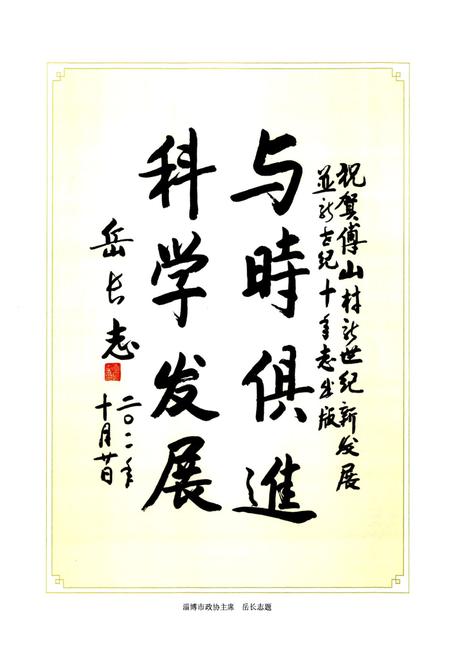 祝贺傅山村新世纪新发展
并新世纪十年志出版
与時俱進
科学发展
岳长志
二〇一一年
十月廿日
淄博市政协主席　岳长志题